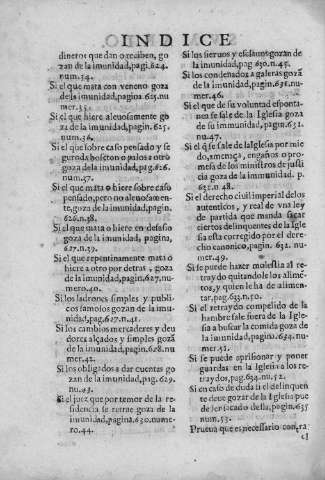 INDICE
dineros que dan o reciben, go
zan de la imunidad, pag. 624.
num. 34.
Si el que mata con veneno goza
de la imunidad, pagina 625. nu
mer. 35.
Si el que hiere alevosamente go
za de la imunidad, pagin. 625.
num. 36.
Si el que sobre caso pensado y se
guro da bofeton o palos a otro
goza de la imunidad, pag. 626.
num. 37.
Si el que mata o hiere sobre caso
pensado, pero no alevosamen-
te, goza de la imunidad, pagin.
626. n. 38.
Si el que mata o hiere en desafio
goza de la imunidad, pagina,
627. n. 39.
Si el que repentinamente mata o
hiere a otro por detras, goza
de la imunidad, pagin. 627. nu
mero. 40.
Si los ladrones simples y publi-
cos famosos gozan de la imu-
nidad, pag. 627. n. 41.
Si los cambios mercaderes y deu
dores alçados y simples gozã
de la imunidad, pag. 628. nu
mer. 42.
Si los obligados a dar cuentas go
zan de la imunidad, pag. 629.
nu. 43.
Si el juez que por temor de la re-
sidencia se retrae goza de la
imunidad, pagina, 630. nume-
ro. 44.
Si los siervos y esclavos gozan de
la imunidad, pag 630. n. 45.
Si los condenados a galeras gozã
de la imunidad, pagin. 631. nu
mer. 46.
Si el que de su voluntad espontа
nea se sale de la Iglesia goza
de su immunidad, pagin. 631.
nu. 47.
Si el q̃ se sale de la Iglesia por mie
do, amenaça, engaños o pro-
mesa de los ministros de justi
cia goza de la immunidad. p.
631. n 48.
Si el derecho civil imperial de los
autenticos, y real de vna ley
de partida que manda sacar
ciertos delinquentes de la Igle
sia esta corregido por el dere-
cho canonico, pagin. 632. nu
mer. 49.
Si se puede hazer molestia al re-
traydo quitandole los alimẽ-
tos, y quien le ha de alimen-
tar, pag. 633. n. 50.
Si el retraydo compelido de la
hambre sale fuera de la Igle-
sia a buscar la comida goza de
la imunidad, pagin. 634. nu-
mer. 51.
Si se puede aprisionar y poner
guardas en la Iglesia a los re-
traydos, pag. 634. nu. 52.
Si en caso de duda si el delinquen
te deve gozar de la Iglesia pue
de ser sacado della, pagin. 635
num. 53.
Prueva que es necessario contra